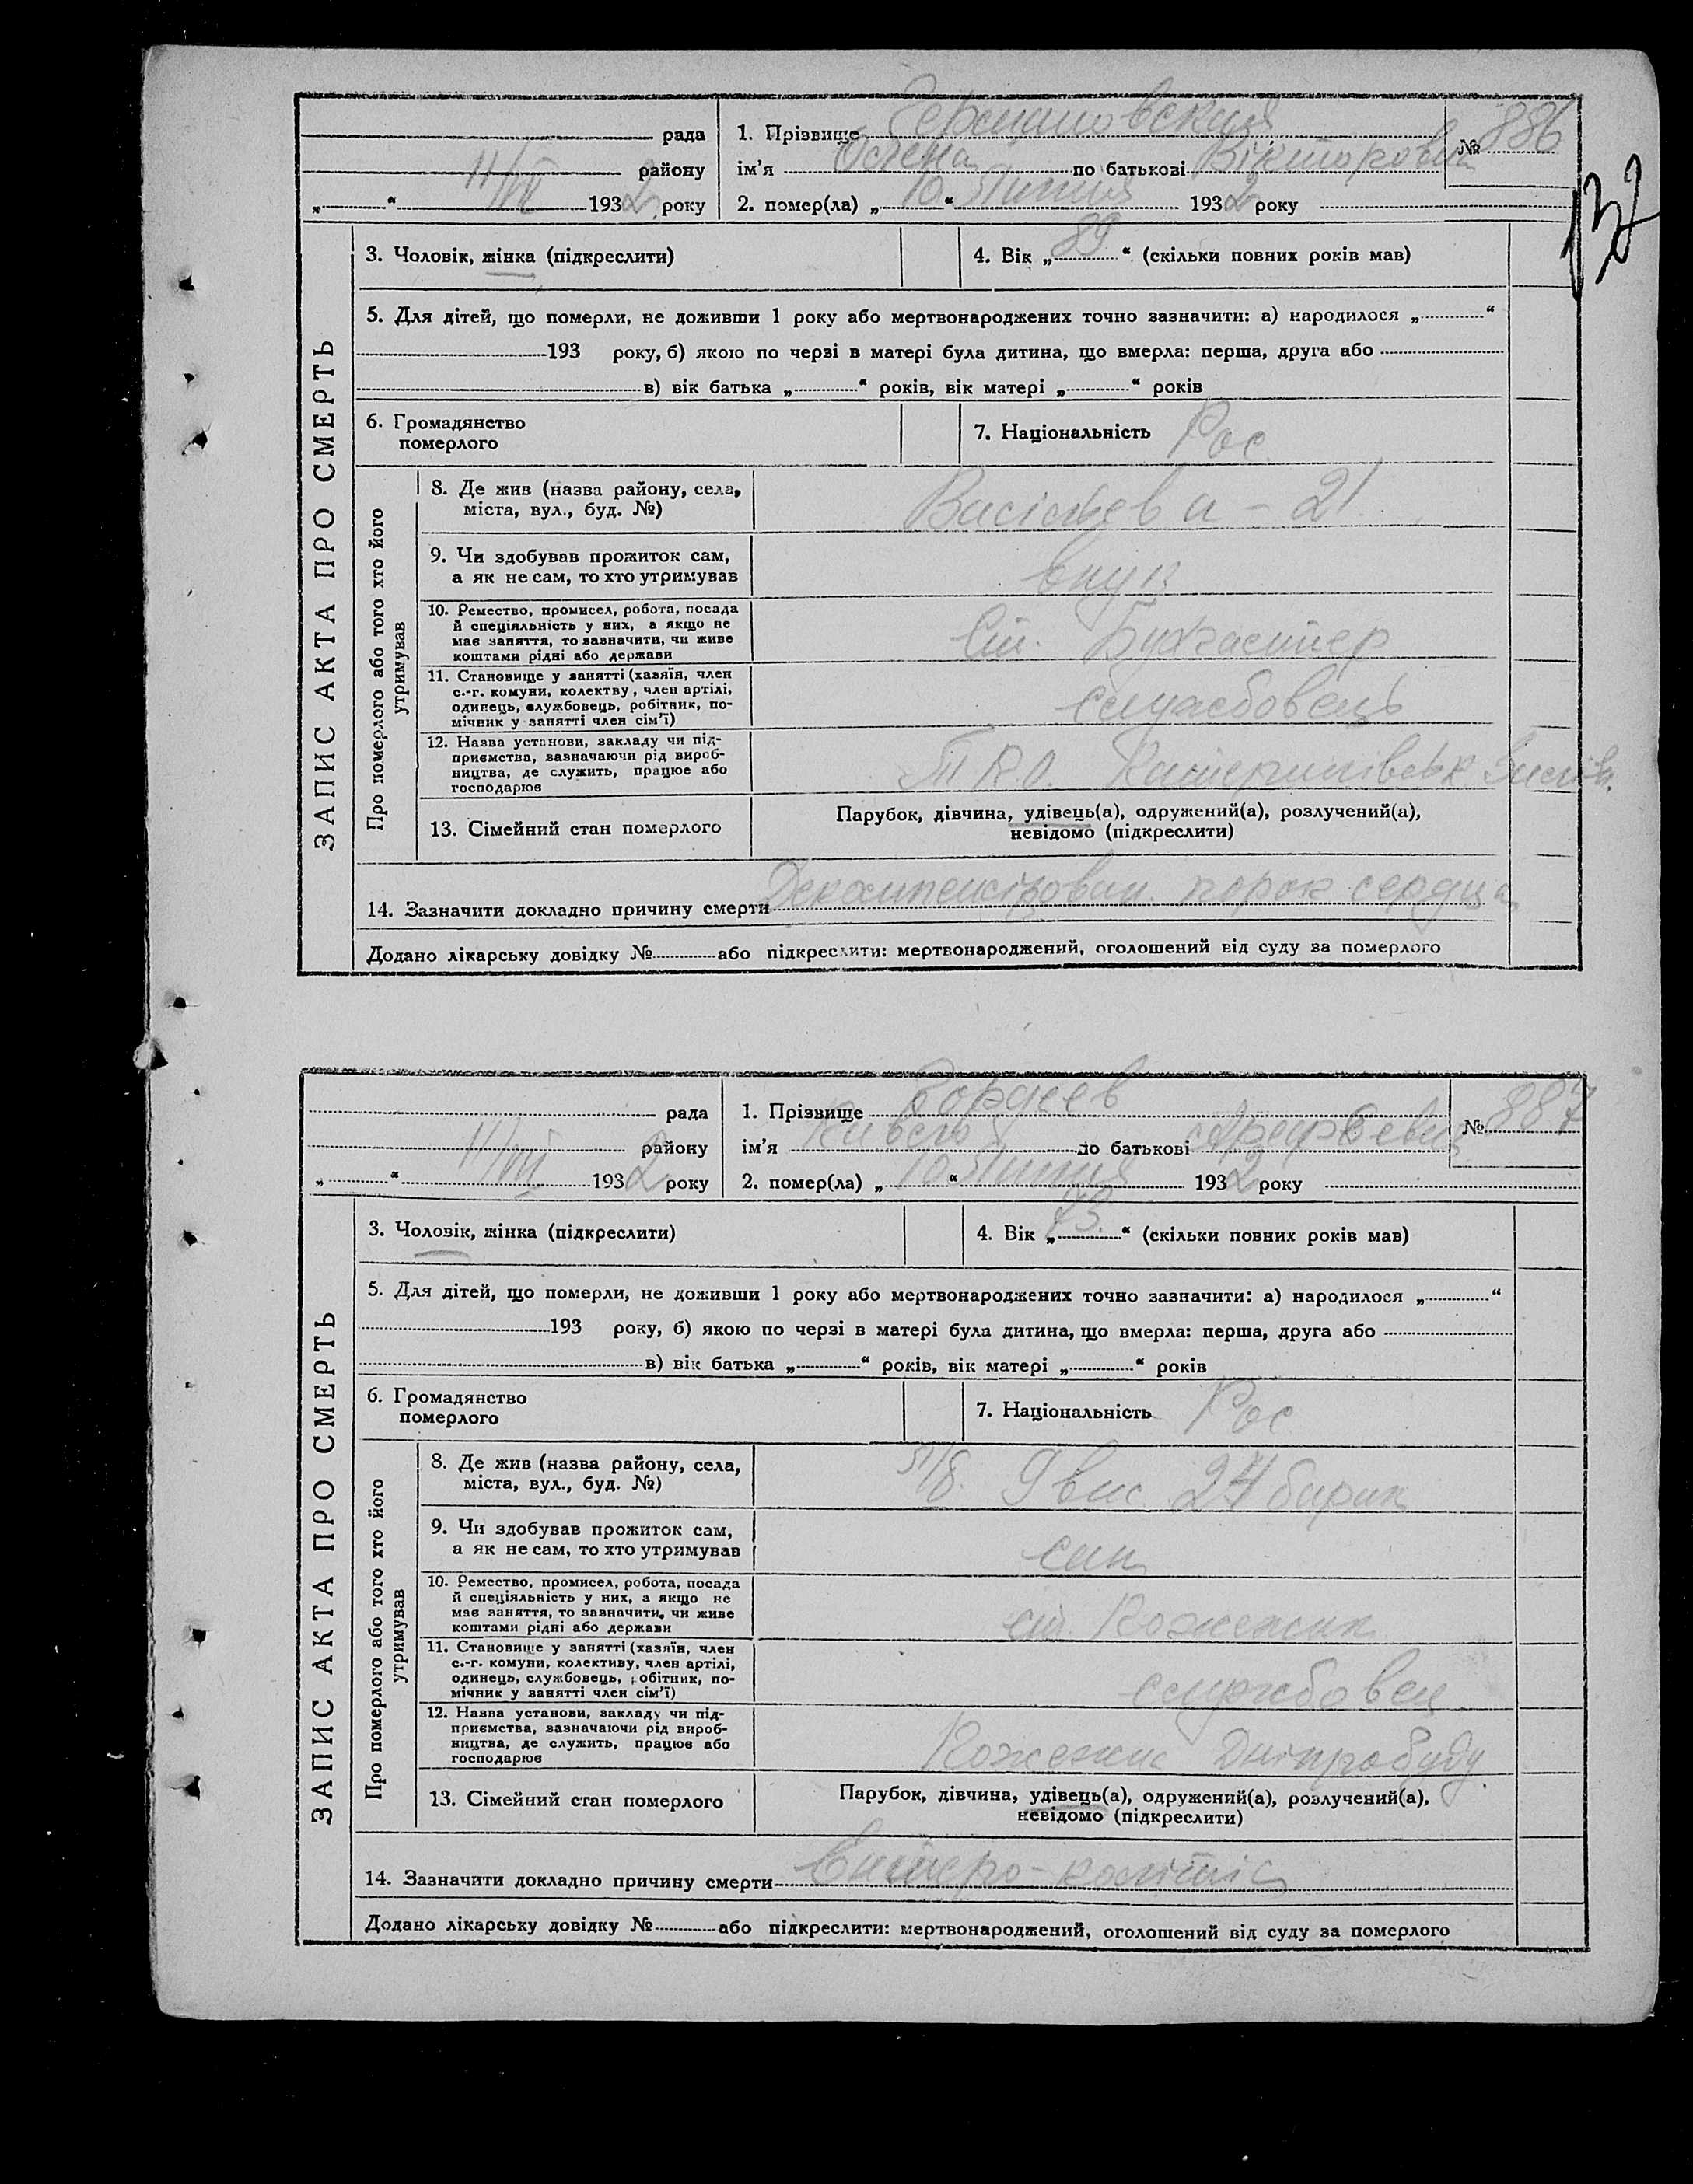 137
ЗАПИС АКТА ПРО СМЕРТЬ
рада
району
„ “ 11/VII 1932 року
1. Прізвище
№ 886
ім'я Олена по батькові Вікторовна
2. помер(ла) „10“ Липня 1932 року
3. Чоловік, жінка (підкреслити)
4. Вік „89“ (скільки повних років мав)
5. Для дітей, що померли, не доживши 1 року або мертвонароджених точно зазначити: а) народилося „ “
193 року, б) якою по черзі в матері була дитина, що вмерла: перша, друга або
в) вік батька „ “ років, вік матері „ “ років
6. Громадянство
померлого
7. Національність Рос.
Про померлого або того хто його
утримував
8. Де жив (назва району, села,
міста, вул., буд. №)
Васільєва – 21.
9. Чи здобував прожиток сам,
а як не сам, то хто утримував
внук
10. Ремество, промисел, робота, посада
й спеціяльність у них, а якщо не
має заняття, то зазначити, чи живе
коштами рідні або держави
Ст. Бухгалтер
11. Становище у занятті (хазяїн, член
с.-г. комуни, колектву, член артілі,
одинець, службовець, робітник, по-
мічник у занятті член сім'ї)
службовець
12. Назва установи, закладу чи під-
приємства, зазначаючи рід вироб-
ництва, де служить, працює або
господарює
13. Сімейний стан померлого
Парубок, дівчина, удівець(а), одружений(а), розлучений(а),
невідомо (підкреслити)
14. Зазначити докладно причину смерти Декомпенсірован. порок сердца
Додано лікарську довідку № або підкреслити: мертвонароджений, оголошений від суду за померлого
ЗАПИС АКТА ПРО СМЕРТЬ
рада
району
„ “ 11/VII 1932 року
1. Прізвище Гордеев
№ 887
ім'я по батькові
2. помер(ла) „10“ Липня 1932 року
3. Чоловік, жінка (підкреслити)
4. Вік „73.“ (скільки повних років мав)
5. Для дітей, що померли, не доживши 1 року або мертвонароджених точно зазначити: а) народилося „ “
193 року, б) якою по черзі в матері була дитина, що вмерла: перша, друга або
в) вік батька „ “ років, вік матері „ “ років
6. Громадянство
померлого
7. Національність Рос
Про померлого або того хто його
утримував
8. Де жив (назва району, села,
міста, вул., буд. №)
9 вис. 24 барак
9. Чи здобував прожиток сам,
а як не сам, то хто утримував
син
10. Ремество, промисел, робота, посада
й спеціяльність у них, а якщо не
має заняття, то зазначити, чи живе
коштами рідні або держави
ст. Пожежник
11. Становище у занятті (хазяїн, член
с.-г. комуни, колективу, член артілі,
одинець, службовець, робітник, по-
мічник у занятті член сім'ї)
службовец
12. Назва установи, закладу чи під-
приємства, зазначаючи рід вироб-
ництва, де служить, працює або
господарює
Пожежна Дніпробуду.
13. Сімейний стан померлого
Парубок, дівчина, удівець(а), одружений(а), розлучений(а),
невідомо (підкреслити)
14. Зазначити докладно причину смерти Ентеро-колітіс
Додано лікарську довідку № або підкреслити: мертвонароджений, оголошений від суду за померлого